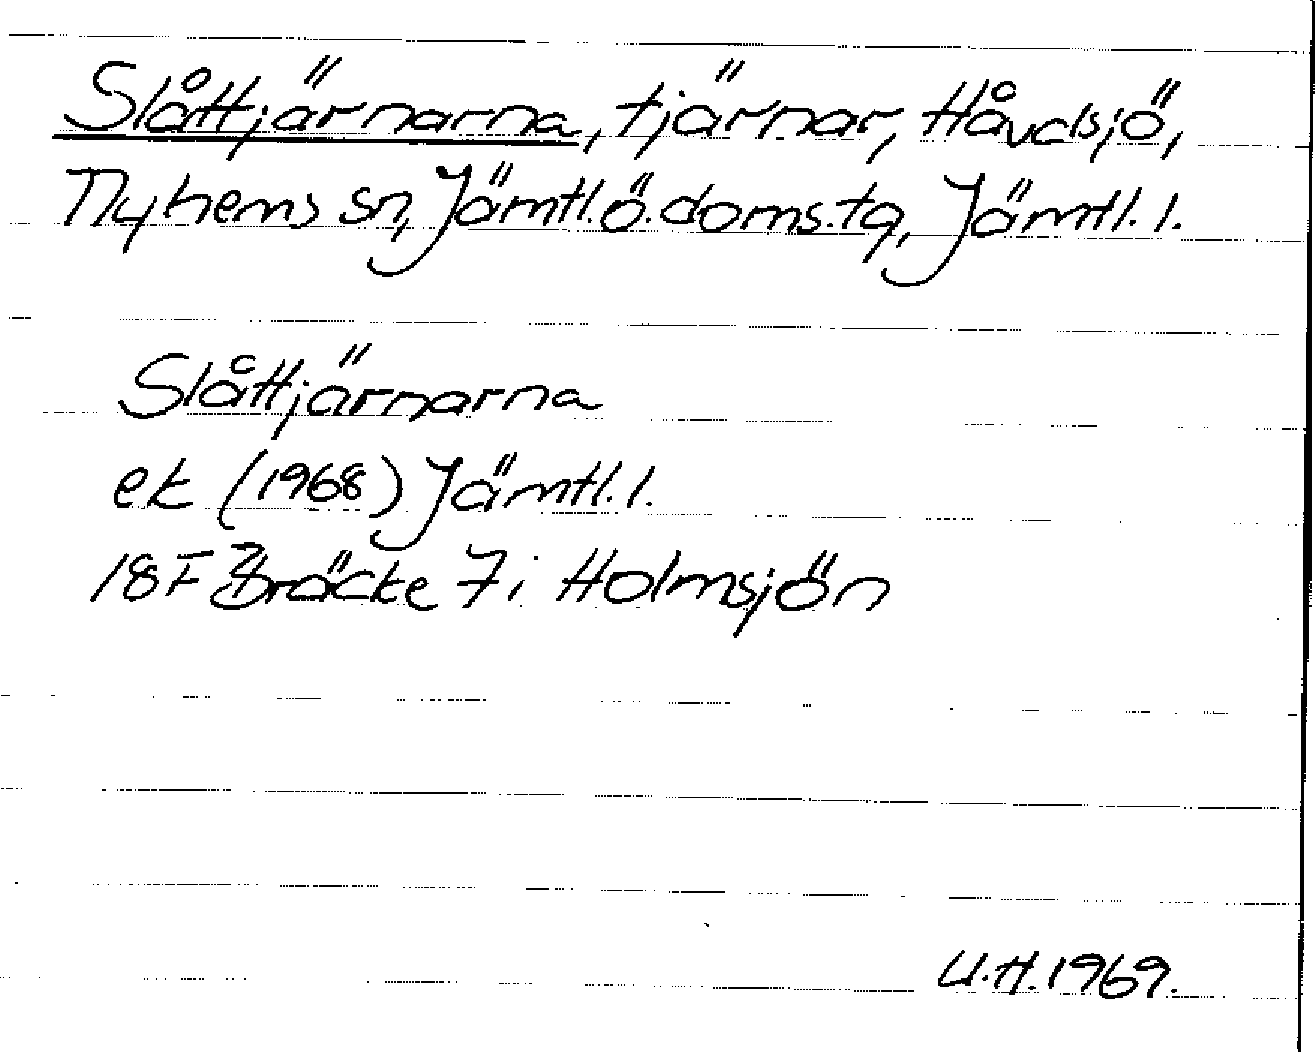 Slåttjärnarna, tjärnar, Håvdsjö,
Nyhems sn, Jämtl. ö. doms. tg, Jämtl. l.
Slåttjärnarna
ek (1968) Jämtl. l.
18 F Bräcke 7 i Holmsjön
U.H. 1969.